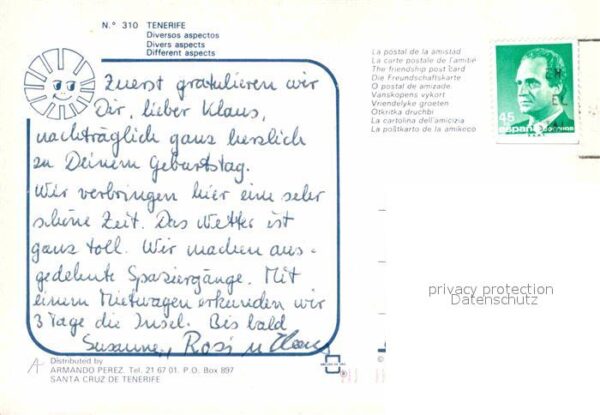 N.° 310 TENERIFE
Diversos aspectos
Divers aspects
Different aspects
Zuerst gratulieren wir
Dir, lieber Klaus,
nachträglich ganz herzlich
zu Deinem Geburtstag.
Wir verbringen hier eine sehr
schöne Zeit. Das Wetter ist
ganz toll. Wir machen aus-
gedehnte Spaziergänge. Mit
einem Mietwagen erkunden wir
3 Tage die Insel. Bis bald
Susanne, Rosi u.
Distributed by
ARMANDO PEREZ. Tel. 21 67 01. P.O. Box 897
SANTA CRUZ DE TENERIFE
La postal de la amistad
La carte postale de l'amitie
The friendship post card
Die Freundschaftskarte
O postal de amizade
Vanskopens vykort
Vriendelyke groeten
Otkritka druchbi
La cartolina dell'amicizia
La poŝtkarto de la amikeco
45
españa
privacy protection
Datenschutz